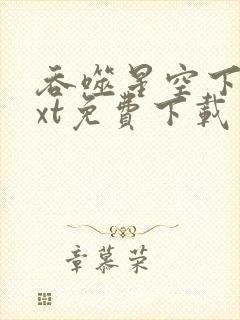 吞噬星空下
xt免費下載
章慕荣